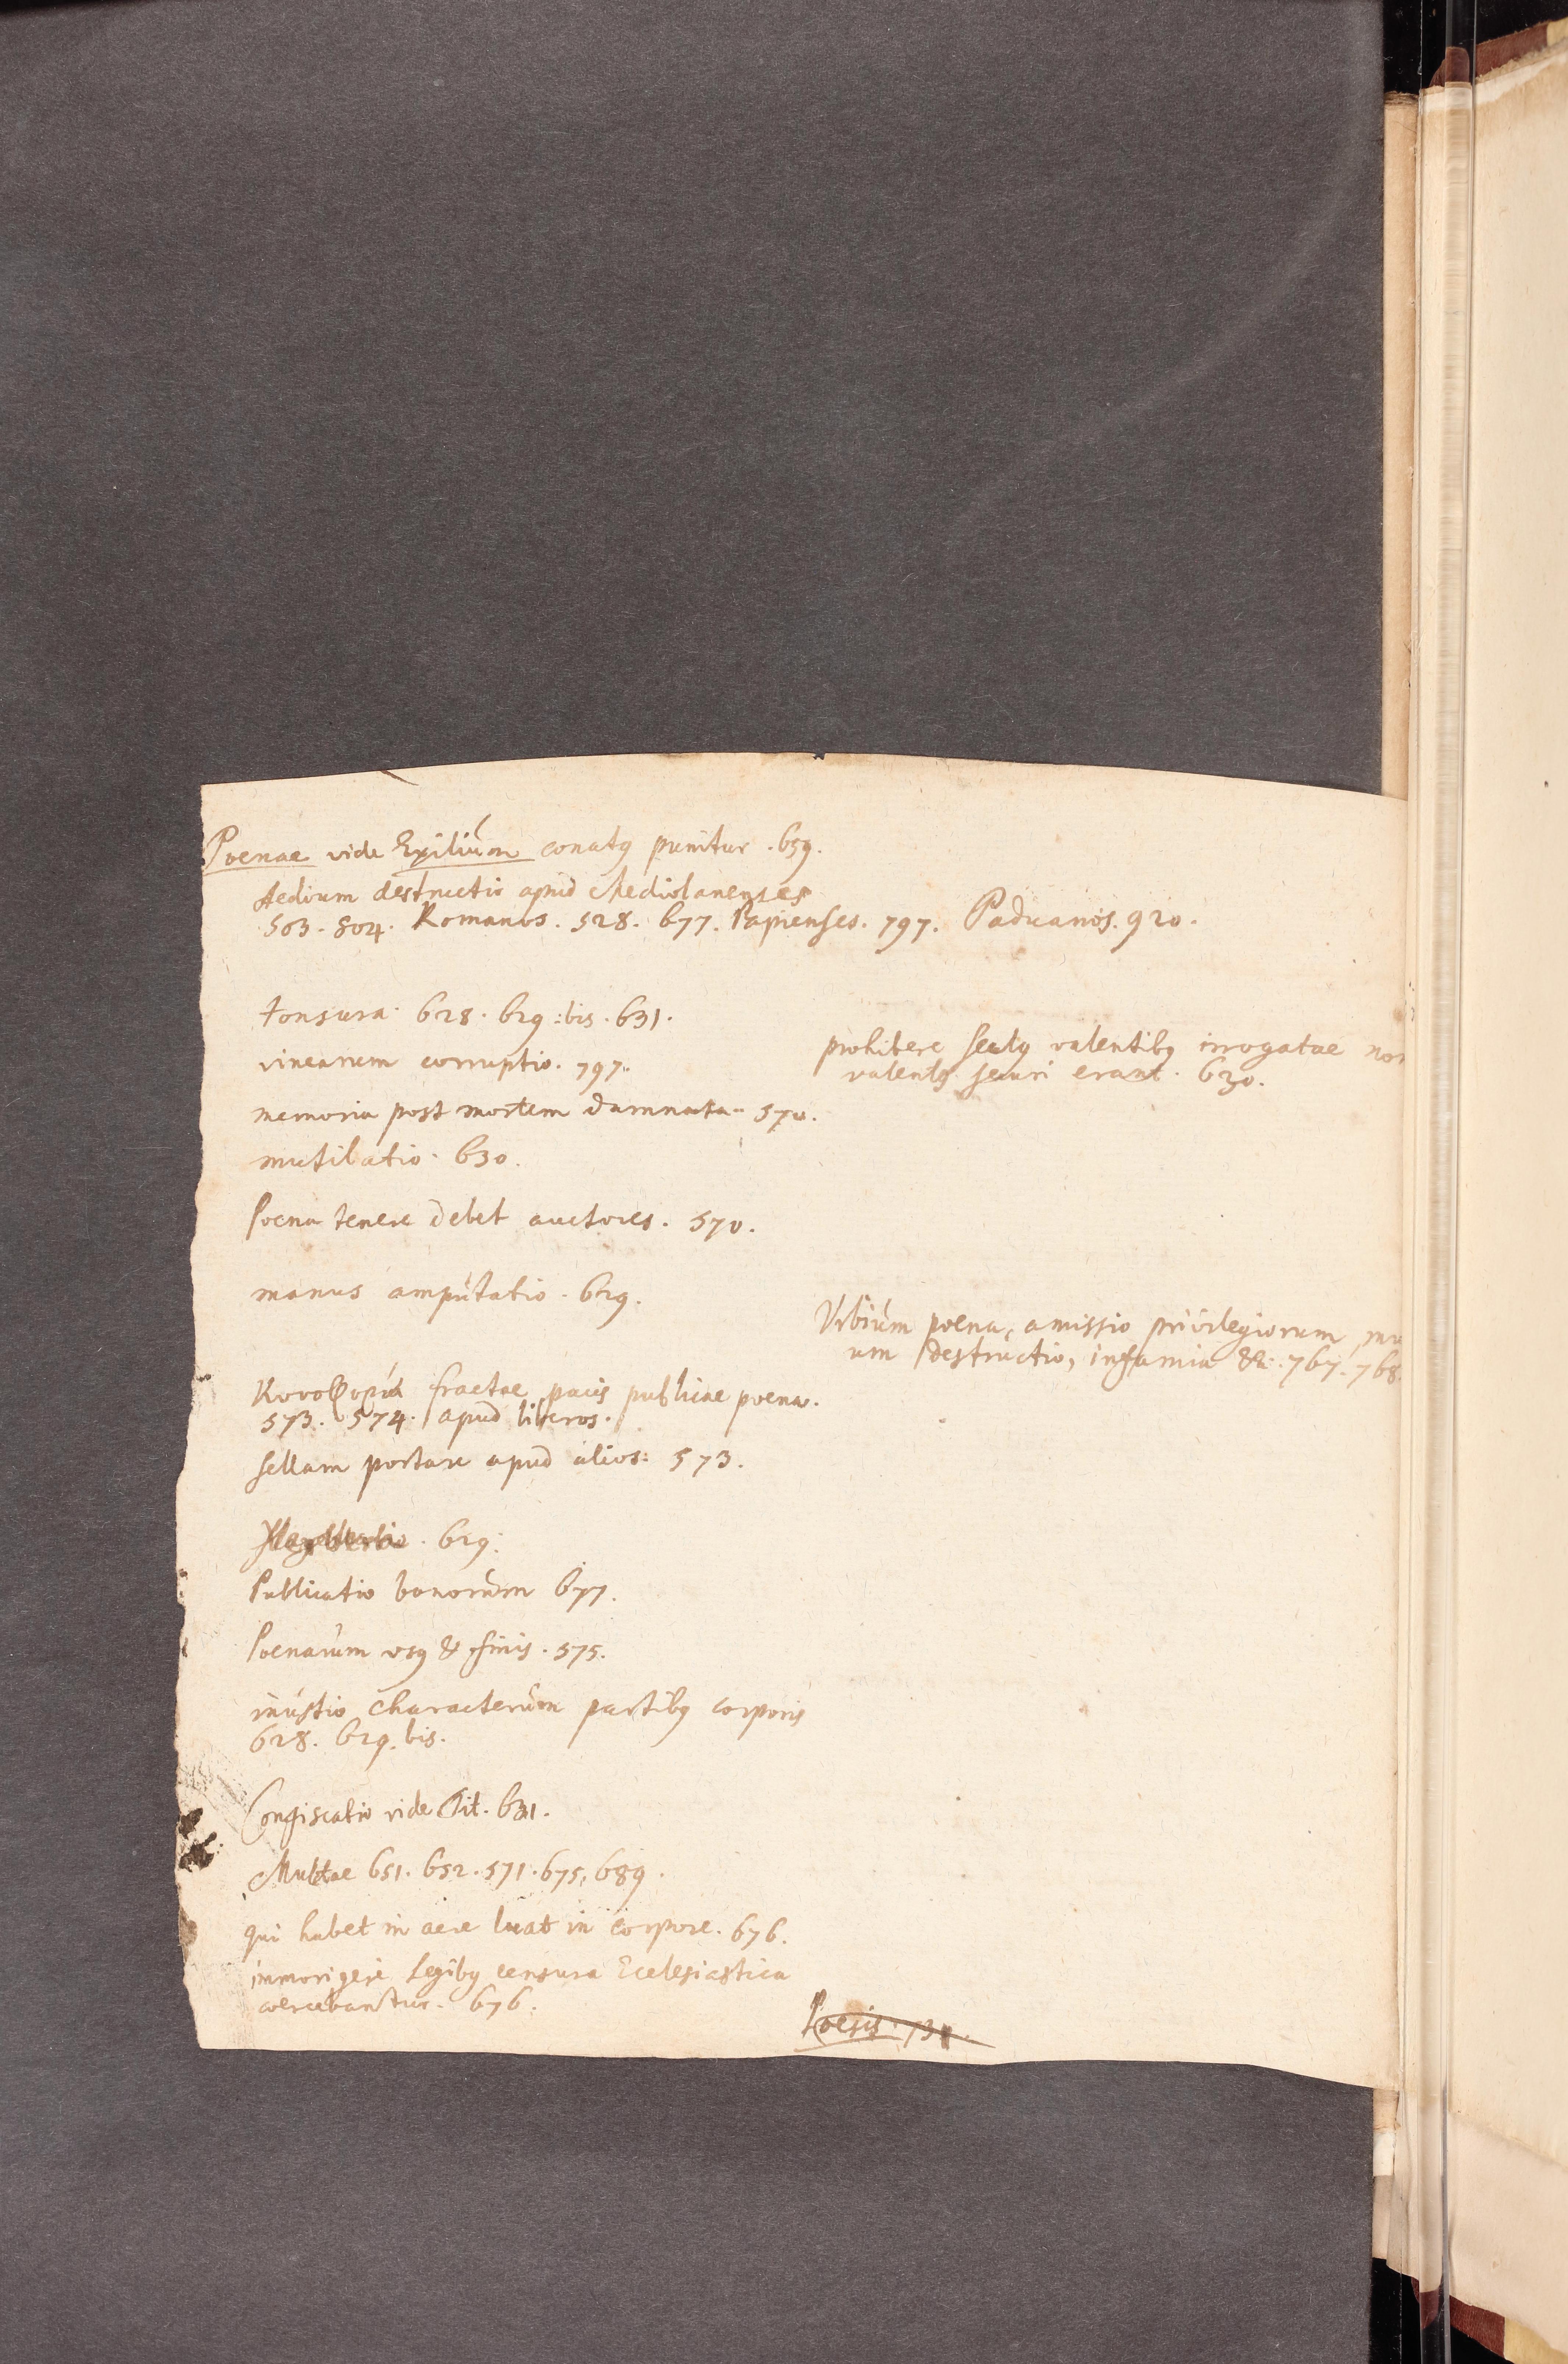 Poenae vide Exilium conatꝯ punitur . 659.
Aedium destructio apud Mediolanenses
503. 804. Romanos. 528. 677. Papienses. 797. Paduanos. 920.
tonsura. 628. 629: bis. 631.
vinearum corruptio. 797.
memoria post mortem damnata. 570.
mutilatio. 630.
Poena tenere debet auctores. 570.
manus amputatio. 629.
Κυνοφορία fractae pacis publicae poena.
573. 574. apud liberos.
sellam portare apud alios. 573.
629.
Publicatio bonorum 677.
Poenarum vsꝯ & finis. 575.
inustio characterum partibꝯ corporis
628. 629. bis.
Confiscatio vide Tit. 631.
Multae 651. 652. 571. 675. 689.
qui habet in aere luat in corpore. 676.
immorigeri Legibꝯ censura Ecclesiastica
coercebantur. 676.
prohibere scelꝯ valentibꝯ irrogatae non
valentꝯ securi erant. 630.
Urbium poena, amissio privilegiorum, mu
um destructio, infamia &c. 767. 768.
Poesis.